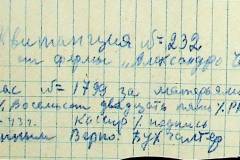 Квитанция № 232
от фермы „Александро
час № 1799 за материя
% Восемьсот двадцать пять % р
43 г. Кассир % подпись
Верно: Бухгалтер